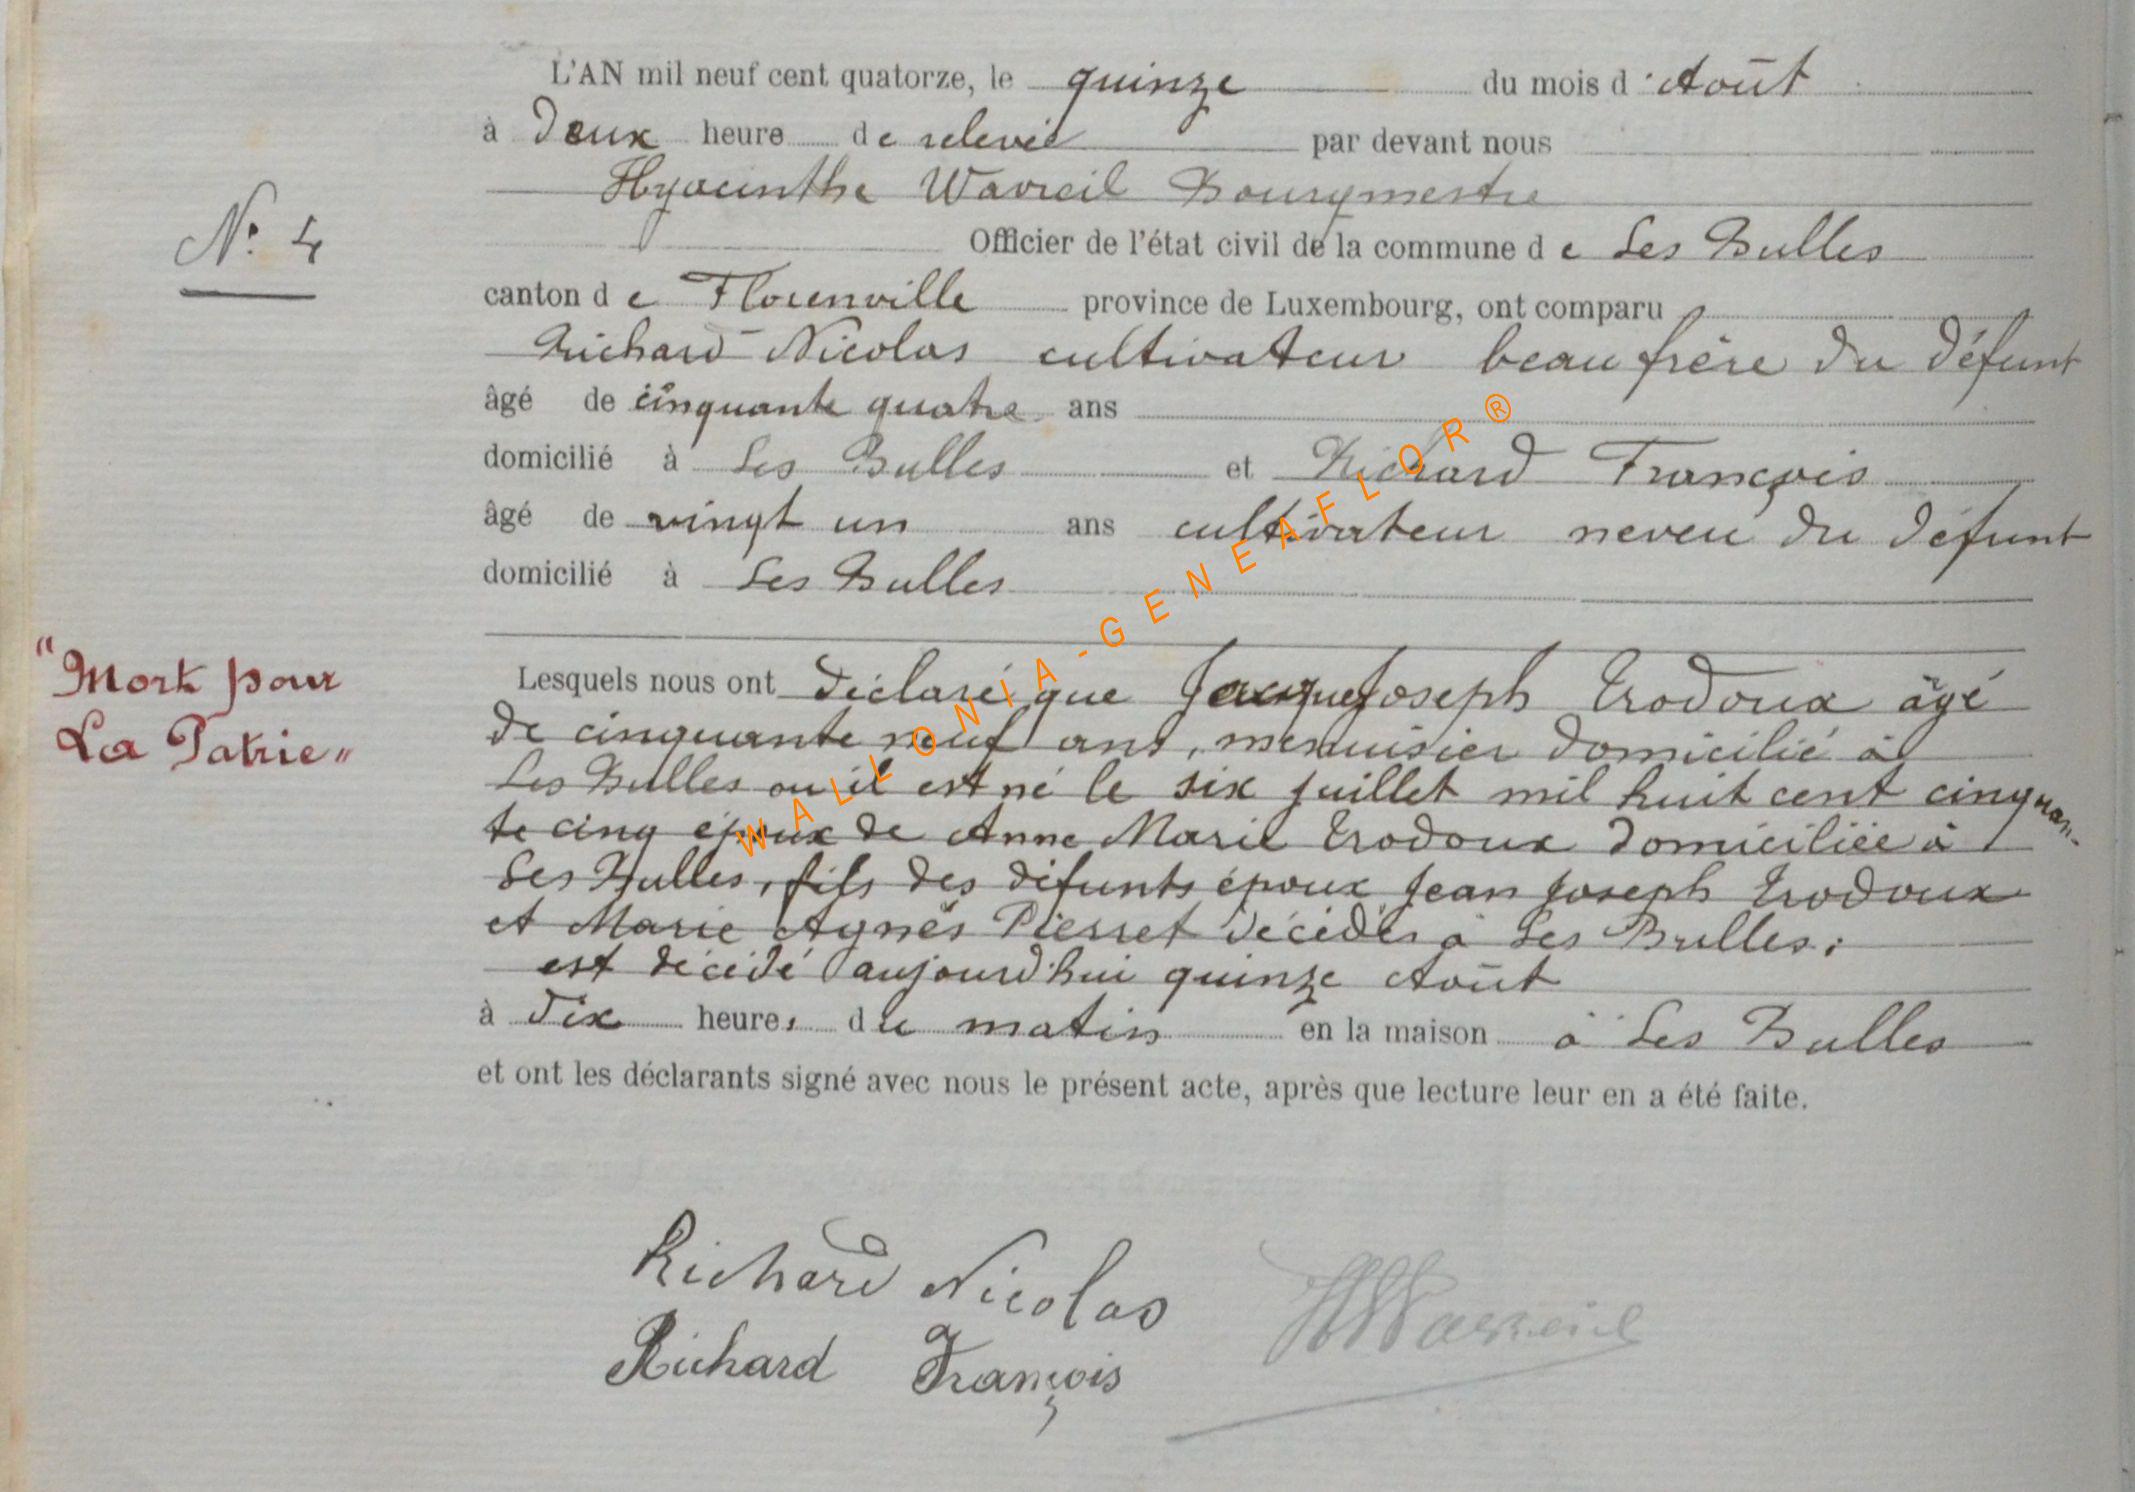 L'AN mil neuf cent quatorze, le quinze du mois d'Août
à deux heure de relevée par devant nous
Hyacinthe Wavreil Bourgmestre
N° 4
Officier de l'état civil de la commune de Les Bulles
canton de Florenville province de Luxembourg, ont comparu
Richard Nicolas cultivateur beau frère du défunt
âgé de cinquante quatre ans
domicilié à Les Bulles et Richard François
âgé de vingt un ans cultivateur neveu du défunt
domicilié à Les Bulles
"Mort pour
La Patrie"
Lesquels nous ont déclaré que Jacques Joseph Trodoux âgé
de cinquante neuf ans, menuisier domicilié à
Les Bulles ou il est né le six juillet mil huit cent cinquan-
te cinq époux de Anne Marie Trodoux domiciliée à
Les Bulles, fils des défunts époux Jean Joseph Trodoux
et Marie Agnès Pierret décédés à Les Bulles;
est décédé aujourd'hui quinze Août
à dix heures du matin en la maison à Les Bulles
et ont les déclarants signé avec nous le présent acte, après que lecture leur en a été faite.
Richard Nicolas
HWavreil
Richard François
WALLONIA-GENEAFLOR®